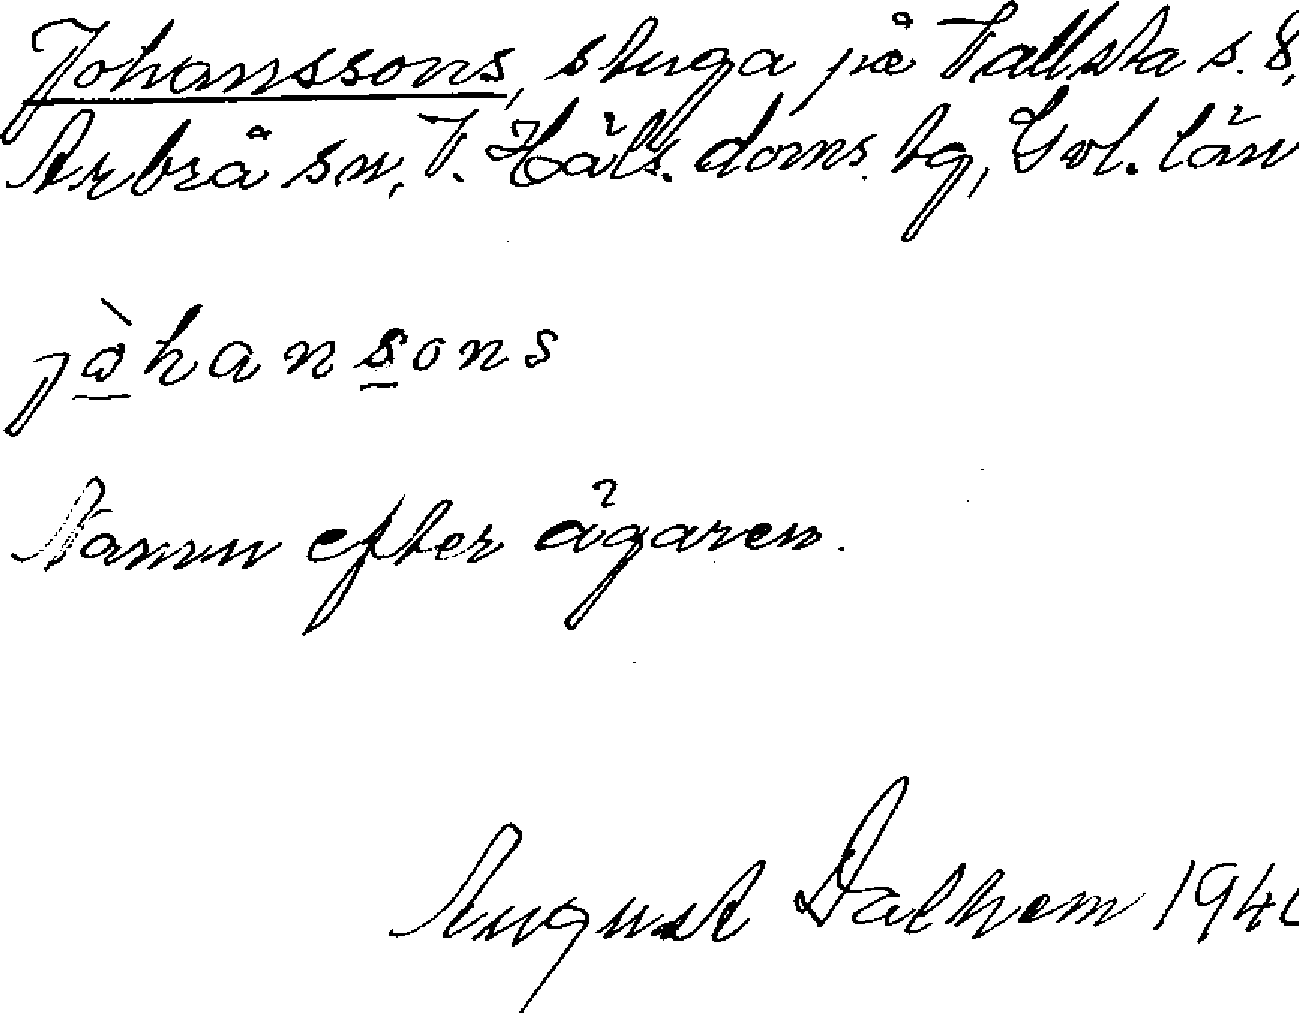 Johanssons, stuga på Vallsta s. 8,
Arbrå sn, V. Häls. doms. tg, Gvl. län
jòhansons
Namn efter ägaren.
August Dalhem 194